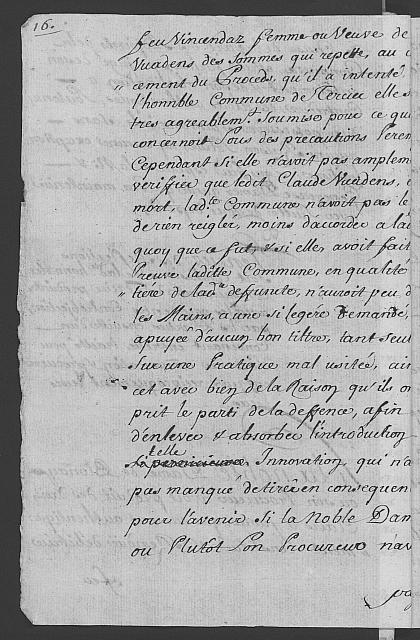 16.
feu Vincendaz femme ou Veuve de
Vuadens des Sommes qui repette, au
cement du Proceds, qu'il a intenté
l'honnble Commune de Tercier elle s
tres agreablemt. Soumise pour ce qu
concernoit Sous des precautions Perem
Cependant Si elle n'avoit pas amplem
verifier que ledit Claude Vuadens,
mort, ladte Commune n'avoit pas le
de rien reigler, moins d'accorder a lad
quoy que ce fut, & si elle avoit fait
Preuve laditte Commune, en qualité
tiére de lade deffunte, n'auroit peu d
les Mains, a une si legere Demande,
apuyée d'aucun bon tiltre, tant seul
Sur une Pratique mal usitée, ain
cet avec bien de la Raison qu'ils on
prit le parti de la deffence, afin
d'enlever & absorber l'introduction
telle
Innovation, qui n'a
pas manqué de tirer en consequen
pour l'avenir Si la Noble Dam
ou Plutôt Son Procureur n'av